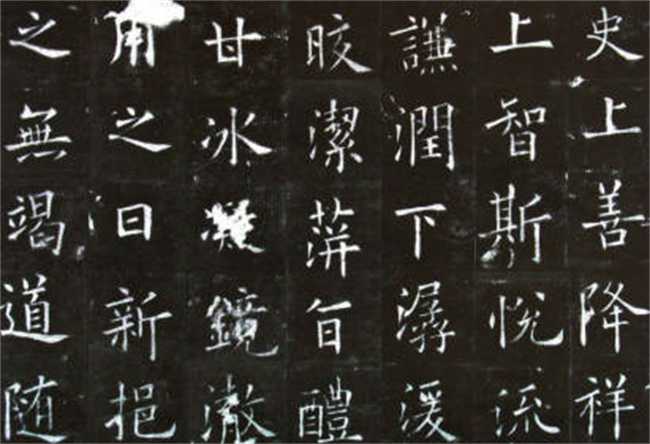 史上善降祥
上智斯悅流
謙潤下潺湲
晈潔蓱旨醴
甘冰凝鏡澈
用之日新挹
之無竭道随